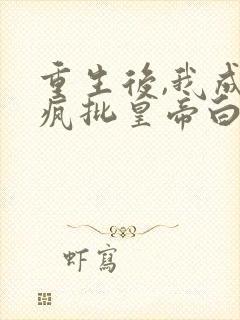 重生後,我成
瘋批皇帝白
虾寫